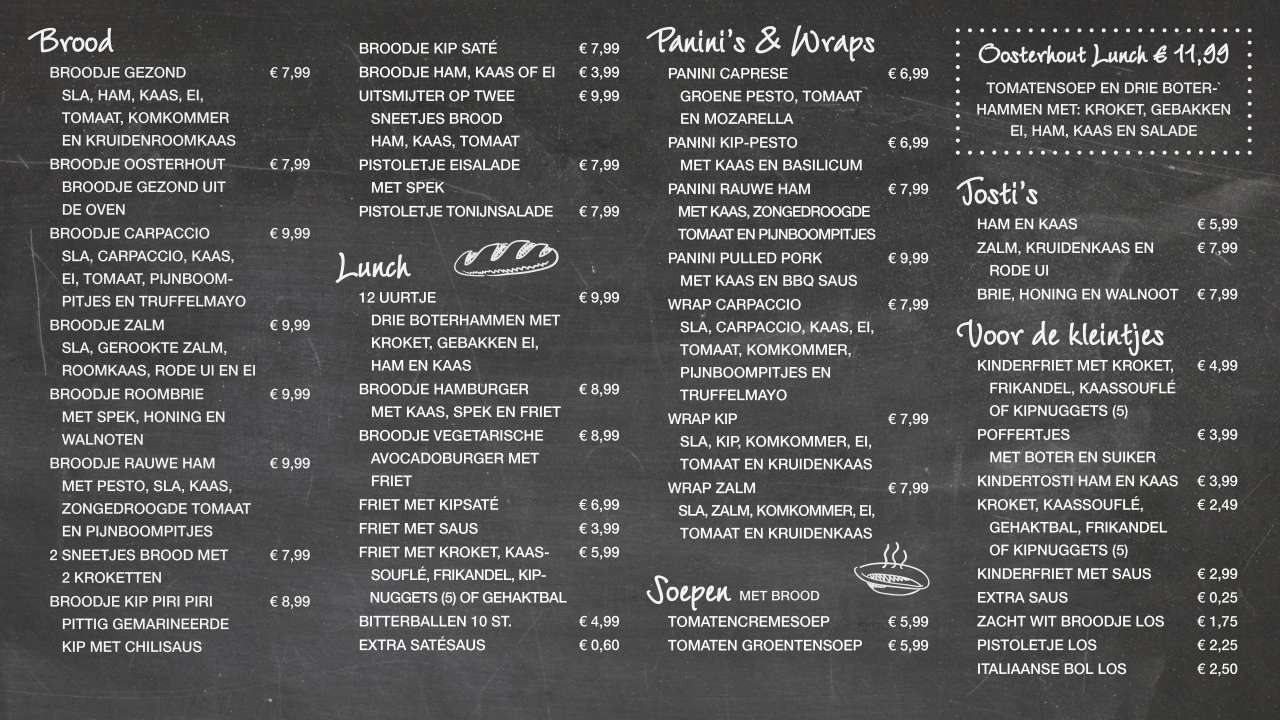 Brood
BROODJE GEZOND € 7,99
SLA, HAM, KAAS, EI,
TOMAAT, KOMKOMMER
EN KRUIDENROOMKAAS
BROODJE OOSTERHOUT € 7,99
BROODJE GEZOND UIT
DE OVEN
BROODJE CARPACCIO € 9,99
SLA, CARPACCIO, KAAS,
EI, TOMAAT, PIJNBOOM-
PITJES EN TRUFFELMAYO
BROODJE ZALM € 9,99
SLA, GEROOKTE ZALM,
ROOMKAAS, RODE UI EN EI
BROODJE ROOMBRIE € 9,99
MET SPEK, HONING EN
WALNOTEN
BROODJE RAUWE HAM € 9,99
MET PESTO, SLA, KAAS,
ZONGEDROOGDE TOMAAT
EN PIJNBOOMPITJES
2 SNEETJES BROOD MET € 7,99
2 KROKETTEN
BROODJE KIP PIRI PIRI € 8,99
PITTIG GEMARINEERDE
KIP MET CHILISAUS
BROODJE KIP SATÉ € 7,99
BROODJE HAM, KAAS OF EI € 3,99
UITSMIJTER OP TWEE € 9,99
SNEETJES BROOD
HAM, KAAS, TOMAAT
PISTOLETJE EISALADE € 7,99
MET SPEK
PISTOLETJE TONIJNSALADE € 7,99
Lunch
12 UURTJE € 9,99
DRIE BOTERHAMMEN MET
KROKET, GEBAKKEN EI,
HAM EN KAAS
BROODJE HAMBURGER € 8,99
MET KAAS, SPEK EN FRIET
BROODJE VEGETARISCHE € 8,99
AVOCADOBURGER MET
FRIET
FRIET MET KIPSATÉ € 6,99
FRIET MET SAUS € 3,99
FRIET MET KROKET, KAAS- € 5,99
SOUFLÉ, FRIKANDEL, KIP-
NUGGETS (5) OF GEHAKTBAL
BITTERBALLEN 10 ST. € 4,99
EXTRA SATÉSAUS € 0,60
Panini's & Wraps
PANINI CAPRESE € 6,99
GROENE PESTO, TOMAAT
EN MOZARELLA
PANINI KIP-PESTO € 6,99
MET KAAS EN BASILICUM
PANINI RAUWE HAM € 7,99
MET KAAS, ZONGEDROOGDE
TOMAAT EN PIJNBOOMPITJES
PANINI PULLED PORK € 9,99
MET KAAS EN BBQ SAUS
WRAP CARPACCIO € 7,99
SLA, CARPACCIO, KAAS, EI,
TOMAAT, KOMKOMMER,
PIJNBOOMPITJES EN
TRUFFELMAYO
WRAP KIP € 7,99
SLA, KIP, KOMKOMMER, EI,
TOMAAT EN KRUIDENKAAS
WRAP ZALM € 7,99
SLA, ZALM, KOMKOMMER, EI,
TOMAAT EN KRUIDENKAAS
Soepen MET BROOD
TOMATENCREMESOEP € 5,99
TOMATEN GROENTENSOEP € 5,99
Oosterhout Lunch € 11,99
TOMATENSOEP EN DRIE BOTER-`
HAMMEN MET: KROKET, GEBAKKEN
EI, HAM, KAAS EN SALADE
Tosti's
HAM EN KAAS € 5,99
ZALM, KRUIDENKAAS EN € 7,99
RODE UI
BRIE, HONING EN WALNOOT € 7,99
Voor de kleintjes
KINDERFRIET MET KROKET, € 4,99
FRIKANDEL, KAASSOUFLÉ
OF KIPNUGGETS (5)
POFFERTJES € 3,99
MET BOTER EN SUIKER
KINDERTOSTI HAM EN KAAS € 3,99
KROKET, KAASSOUFLÉ, € 2,49
GEHAKTBAL, FRIKANDEL
OF KIPNUGGETS (5)
KINDERFRIET MET SAUS € 2,99
EXTRA SAUS € 0,25
ZACHT WIT BROODJE LOS € 1,75
PISTOLETJE LOS € 2,25
ITALIAANSE BOL LOS € 2,50